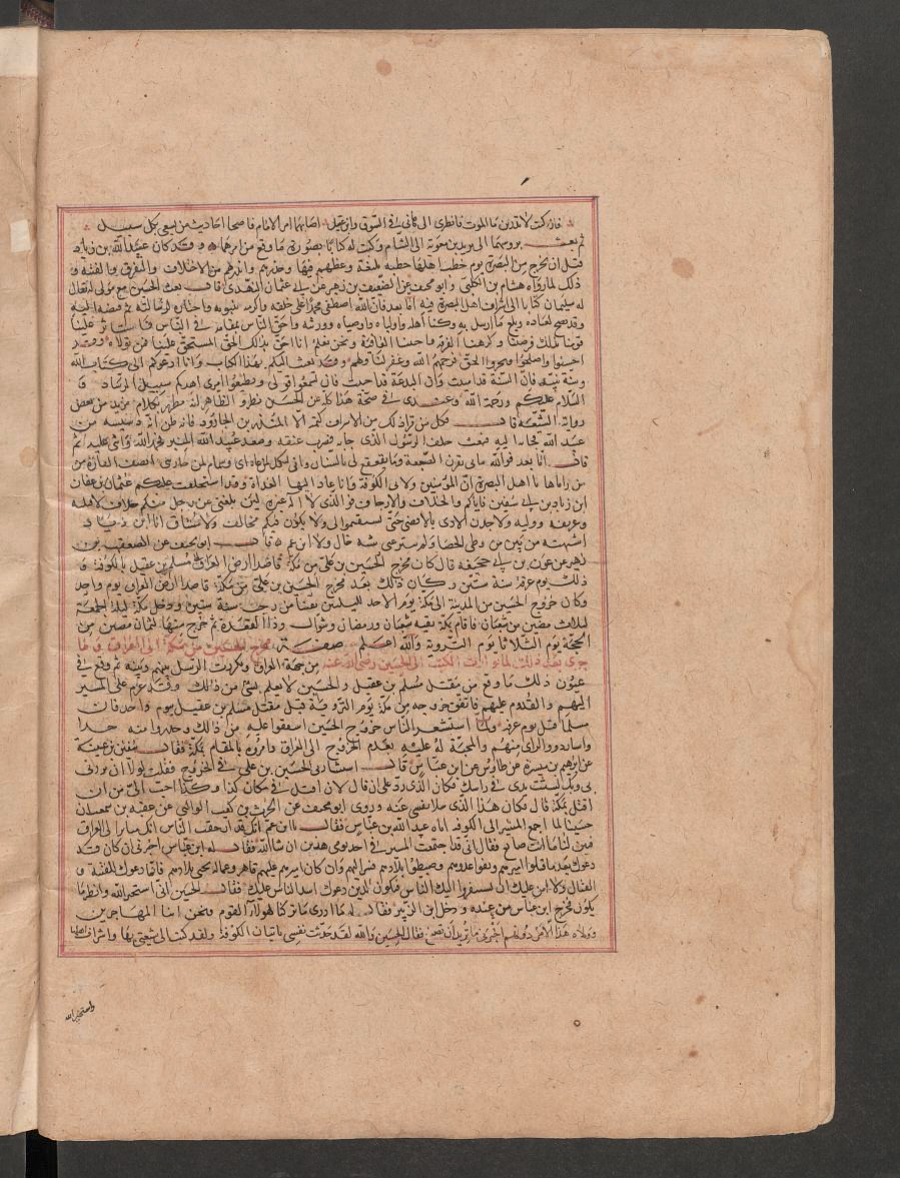 فان كنت لا تدرين ما الموت فانظري الى هانئ في السوق وابن عقيل اصابهما امر الامام فاصبحا احاديث من يسعى بكل سبيل
ثم بعث برؤسهما الى يزيد بن معوية الى الشام وكتب له كتابا بصورة ما وقع من امرهما وقد كان عبيد الله بن زياد
قبل ان يخرج من البصرة بيوم خطب اهلها خطبة بليغة ووعظهم فيها وحذرهم وانذرهم من الاختلاف والتفرق والفتنة و
ذلك لما رواه هشام بن الكلبي وابو مخنف عن الصقعب بن زهير عن ابي عثمان النهدي قال بعث الحسين مع مولى له يقال
له سليمان كتابا الى اشراف اهل البصرة فيه اما بعد فان الله اصطفى محمدا على خلقه واكرمه بنبوته واختاره لرسالته ثم قبضه اليه
وقد نصح لعباده وبلغ ما ارسل به وكنا اهله واولياءه واوصياءه وورثته واحق الناس بمقامه في الناس فاستاثر علينا
قومنا بذلك فرضينا وكرهنا الفرقة واحببنا العافية ونحن نعلم انا احق بذلك الحق المستحق علينا ممن تولاه وقد
احسنوا واصلحوا وتحروا الحق فرحمهم الله وغفر لنا ولهم وقد بعثت اليكم بهذا الكتاب وانا ادعوكم الى كتاب الله
وسنة نبيه فان السنة قد اميتت وان البدعة قد احييت فان تسمعوا قولي وتطيعوا امري اهدكم سبيل الرشاد و
السلام عليكم ورحمة الله وعندي في صحة هذا كله عن الحسين نظر والظاهر انه مطرز بكلام مزيد من بعض
رواة الشيعة قال فكل من قرا ذلك من الاشراف كتمه الا المنذر بن الجارود فانه ظن انه دسيسة من
عبيد الله فجاء به اليه فبعث خلف الرسول الذي جاء فضرب عنقه وصعد عبيد الله المنبر فحمد الله واثنى عليه ثم
قال اما بعد فوالله ما بي تقرن الصعبة وما يقعقع لي بالشنان واني لنكل لمن عاداني وسمام لمن حاربني انصف القارة من
من راماها يا اهل البصرة ان امير المؤمنين ولاني الكوفة وانا غاد اليها الغداة وقد استخلفت عليكم عثمان بن
ابن زياد بن ابي سفين فاياكم والخلاف والارجاف فوالذي لا اله غيره لئن بلغني عن رجل منكم خلاف لاقتلنه
وعريفه ووليه ولاخذن الادنى بالاقصى حتى تستقيموا الي ولا يكون فيكم مخالف ولا مشاق انا ابن زياد
اشبهته من بين من وطئ الحصا ولم ينتزعني شبه خال ولا ابن عم قال ابو مخنف عن الصقعب بن
زهير عن عون بن ابي جحيفة قال كان مخرج الحسين بن علي من مكة قاصدا ارض العراق مسلم بن عقيل بالكوفة و
ذلك يوم عرفة سنة ستين وكان ذلك بعد مخرج الحسين بن علي من مكة قاصدا ارض العراق بيوم واحد
وكان خروج الحسين من المدينة الى مكة يوم الاحد لليلتين بقيتا من رجب سنة ستين ودخل مكة ليلة الجمعة
لثلاث مضين من شعبان فاقام بمكة بقية شعبان ورمضان وشوال وذا القعدة ثم خرج منها لثمان مضين من
الحجة يوم الثلاثا يوم التروية والله اعلم صفة مخرج الحسين من مكة الى العراق وما
جرى بعد ذلك لما تواترت الكتب الى الحسين رضي الله عنه من جهة العراق وتكررت الرسل بينهم وبينه ثم وقع في
غبون ذلك ما وقع من مقتل مسلم بن عقيل والحسين لا يعلم بشي من ذلك وقد عزم على المسير
اليهم والقدوم عليهم فاتفق خروجه من مكة يوم التروية قبل مقتل مسلم بن عقيل بيوم واحد فان
مسلما قتل يوم عرفة ولما استشعر الناس خروج الحسين اشفقوا عليه من ذلك وحذروا منه
واشار ذوو الراى منهم والمحبة له عليه بعدم الخروج الى العراق وامروه بالمقام بمكة فقال سفين بن عيينة
عن ابرهيم بن ميسرة عن طاوس عن ابن عباس قال استشارني الحسين بن علي في الخروج فقلت لولا ان يزرى
بي وبك لنشبت يدي في راسك فكان الذي رد علي ان قال لان اقتل في مكان كذا وكذا احب الي من ان
اقتل بمكة قال فكان هذا الذي سلا نفسي عنه وروى ابو مخنف عن الحرث بن كعب الوالبي عن عقبة بن سمعان
حسينا لما اجمع المسير الى الكوفة اتاه عبد الله بن عباس فقال يا ابن عم انه قد ارجف الناس انك ساير الى العراق
فبين لنا ما انت صانع فقال اني قد اجمعت المسير في احد يومي هذين ان شا الله فقال له ابن عباس اخبرني ان كان وقد
دعوك بعد ما قتلوا اميرهم ونفوا عدوهم وضبطوا بلادهم فسر اليهم وان كان اميرهم عليهم قاهر وعماله تجبى بلادهم فانما دعوك للفتنة و
القتال ولا امن عليك ان يستنفروا اليك الناس فيكون الذين دعوك اشد الناس عليك فقال الحسين اني استخير الله وانظر ما
يكون فخرج ابن عباس من عنده ودخل ابن الزبير فقال له ما ادري ما تركنا هولاء القوم ونحن ابنا المهاجرين
وولاة هذا الامر دونهم اخبرني ما تريد ان تصنع فقال الحسين والله لقد حدثت نفسي باتيان الكوفة ولقد كتب الي شيعتي بها واشراف اهلها
واستخير الله